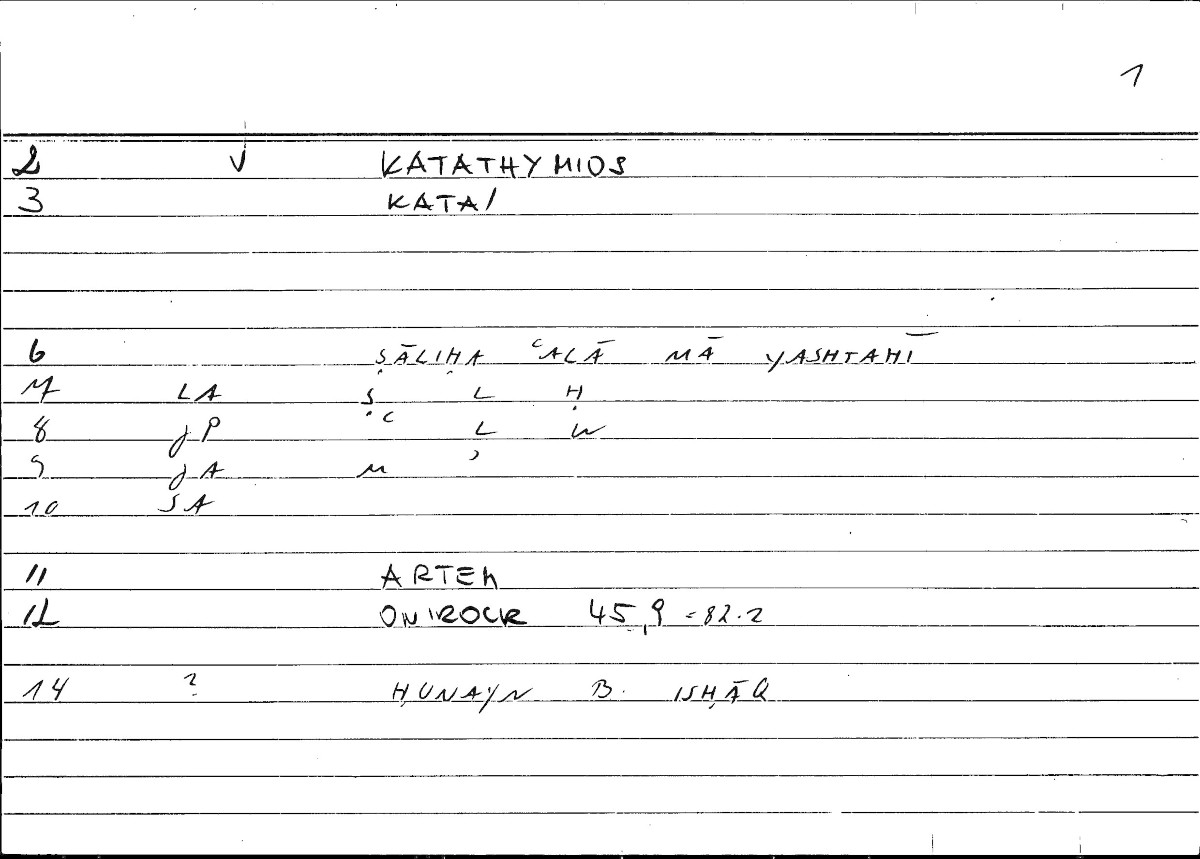 1
2 V KATATHYMIOS
3 KATA/
6 ṢĀLIḤA ʿALĀ MĀ YASHTAHĪ
7 LA Ṣ L Ḥ
8 JP ʿ L W
9 JA M ʾ
10 SA
11 ARTEM
12 ONIROCR 45,9 = 82.2
14 ? ḤUNAYN B. ISḤĀQ